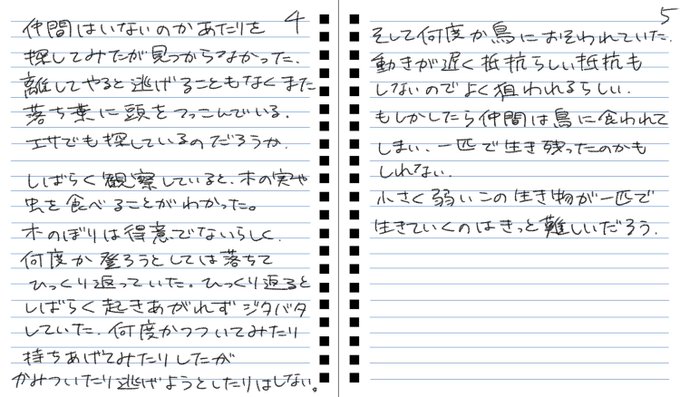 4
仲間はいないのかあたりを
探してみたが見つからなかった.
離してやると逃げることもなくまた
落ち葉に頭をつっこんでいる.
エサでも探しているのだろうか.
しばらく観察していると、木の実や
虫を食べることがわかった。
木のぼりは得意でないらしく.
何度か登ろうとしては落ちて
ひっくり返っていた。ひっくり返ると
しばらく起きあがれずジタバタ
していた.何度かつついてみたり
持ちあげてみたりしたが
かみついたり逃げようとしたりはしない。
5
そして何度か鳥におそわれていた.
動きが遅く抵抗らしい抵抗も
しないのでよく狙われるらしい.
もしかしたら仲間は鳥に食われて
しまい.一匹で生き残ったのかも
しれない.
小さく弱いこの生き物が一匹で
生きていくのはきっと難しいだろう.